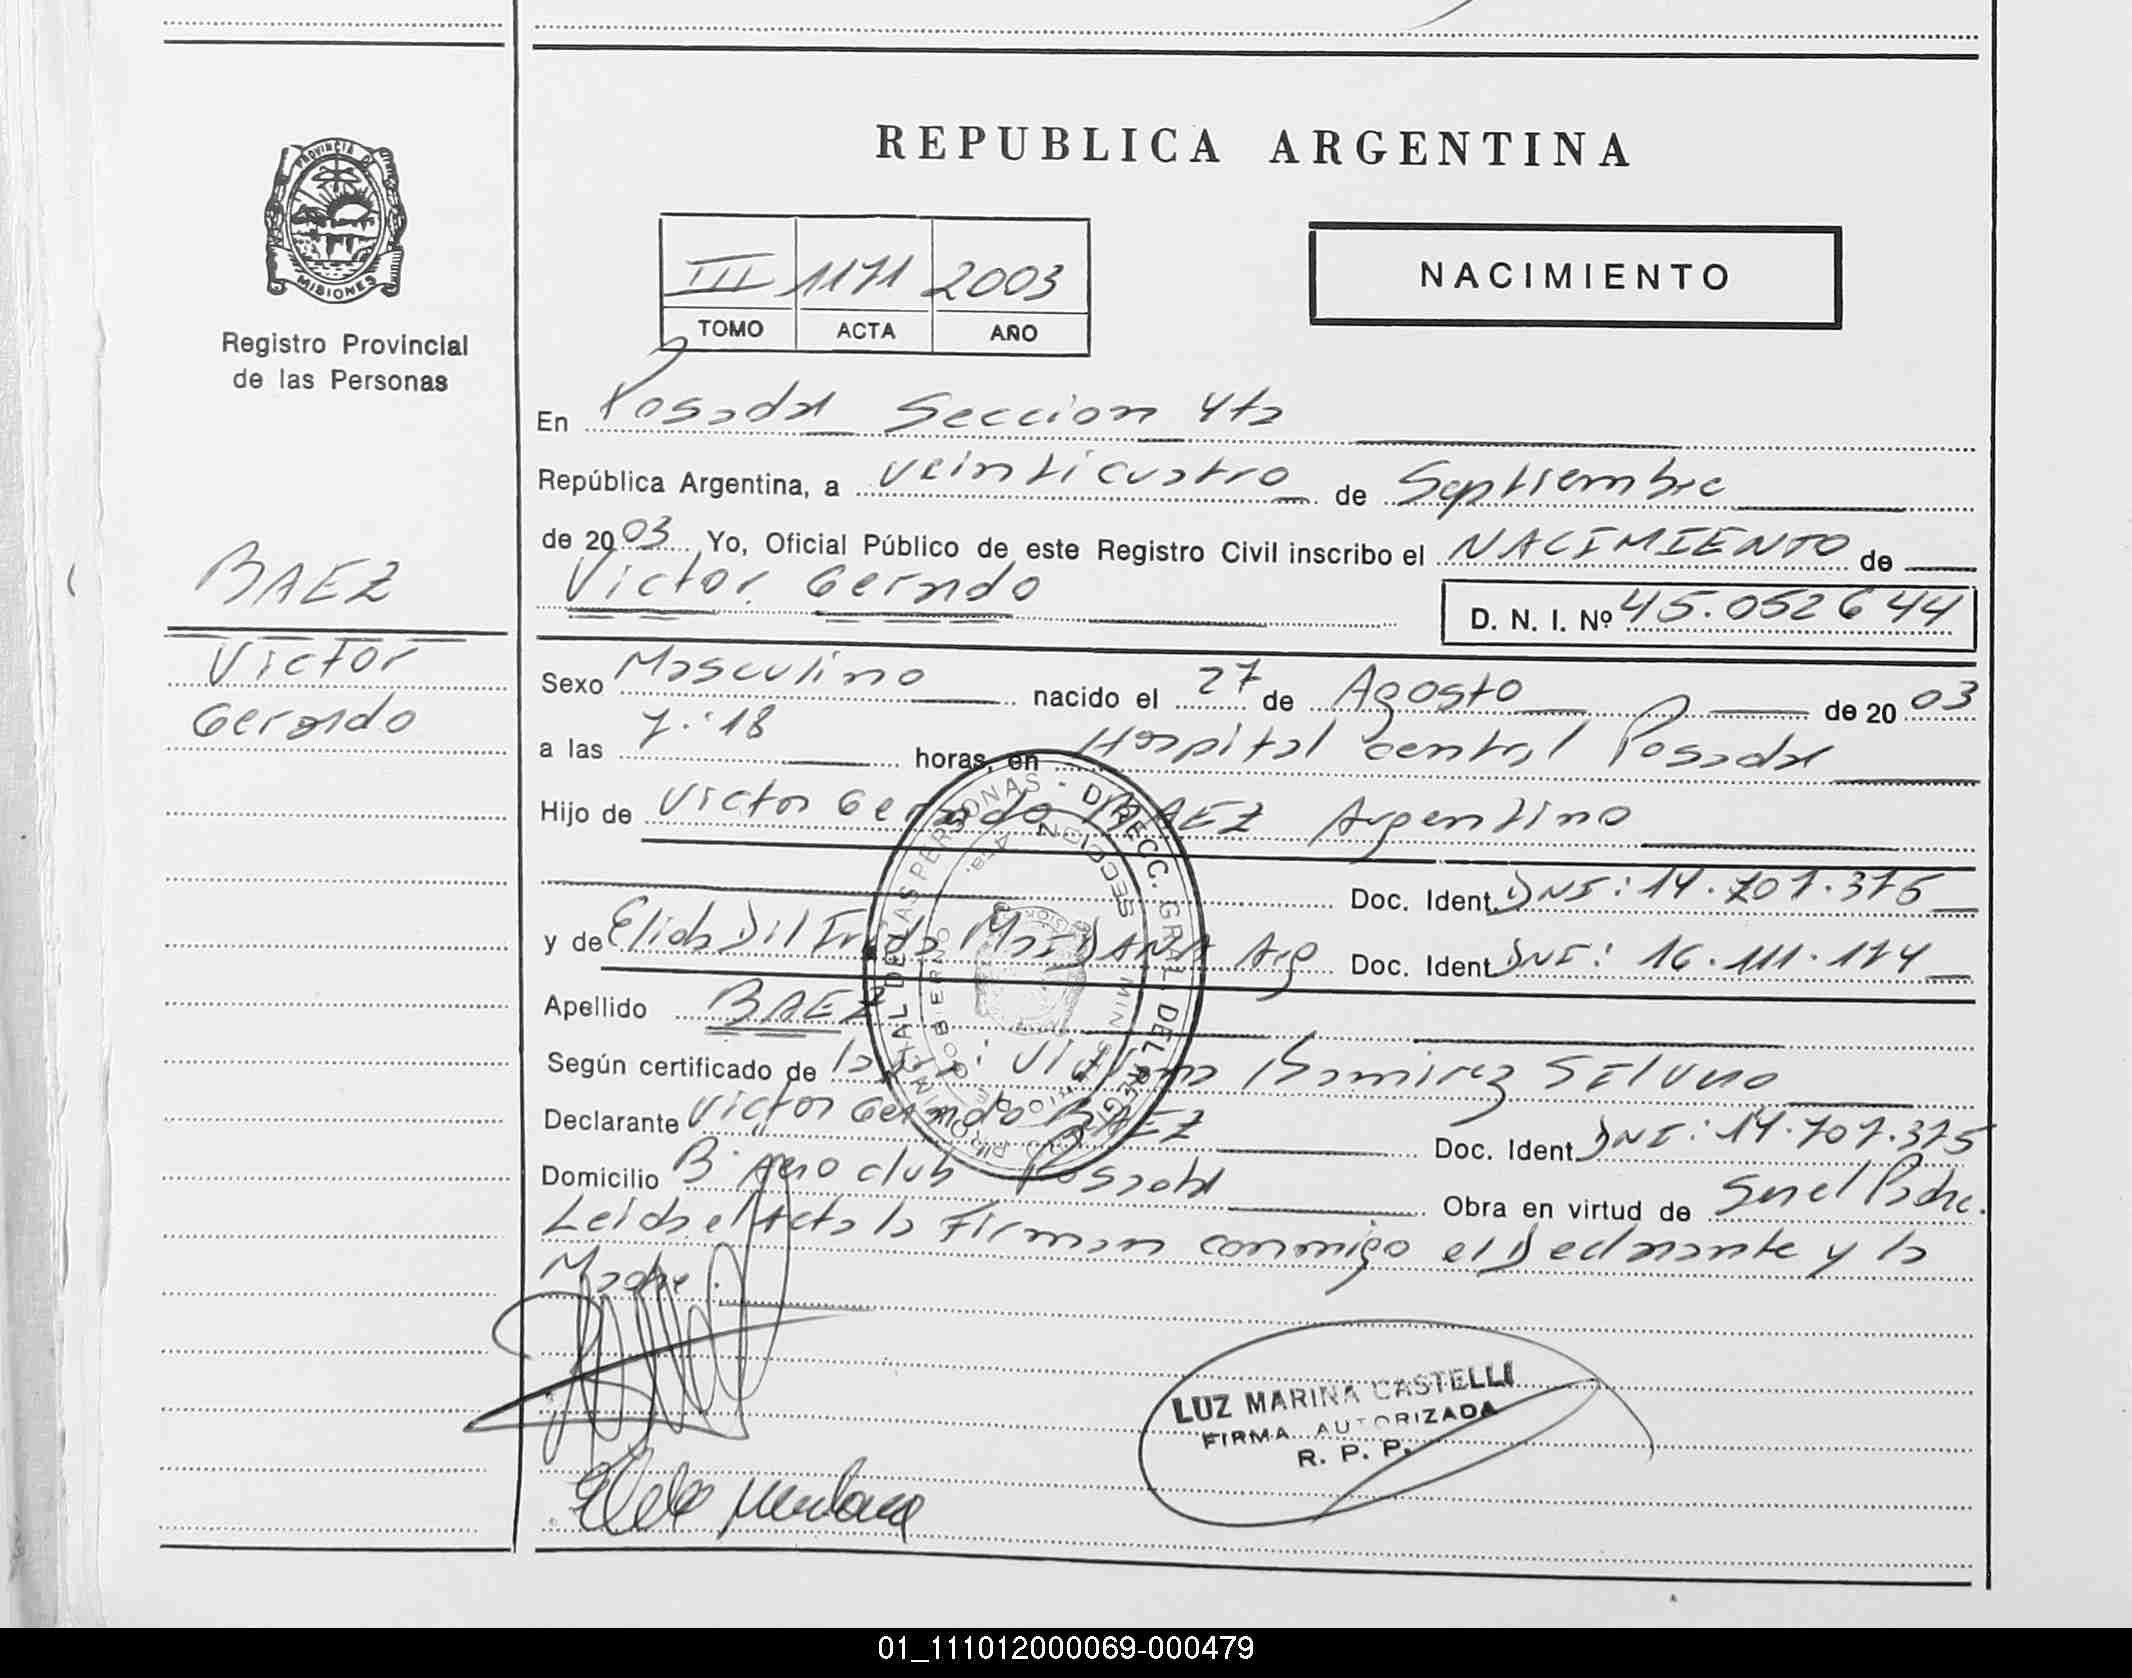 REPUBLICA ARGENTINA
PROVINCIA DE
MISIONES
Registro Provincial
de las Personas
III 1171 2003
TOMO ACTA AÑO
NACIMIENTO
En Posadas Seccion 4ta
República Argentina, a veinticuatro de Septiembre
de 2003 Yo, Oficial Público de este Registro Civil inscribo el NACIMIENTO de
Victor Gerardo D. N. I. Nº 45.052644
BAEZ
Victor
Gerardo
Sexo Masculino nacido el 27 de Agosto de 2003
a las 7:18 horas, en Hospital Central Posadas
Hijo de Victor Gerardo BAEZ Argentino
Doc. Ident. DNI: 14.707.375
y de Elida Maidana Arg Doc. Ident DNI: 16.111.174
Apellido BAEZ
Según certificado de la Ramirez Silvero
Declarante Victor Gerardo BAEZ Doc. Ident. DNI: 14.707.375
Domicilio B° Aero club Posadas Obra en virtud de Ser el Padre.
Leida el Acta la Firman conmigo el Declarante y la
Madre.
DIRECC. GRAL. DEL REGISTRO PROVINCIAL DE LAS PERSONAS
SECCION 4ta.
MINISTERIO DE GOBIERNO
LUZ MARINA CASTELLI
FIRMA AUTORIZADA
R. P. P.
01_111012000069-000479